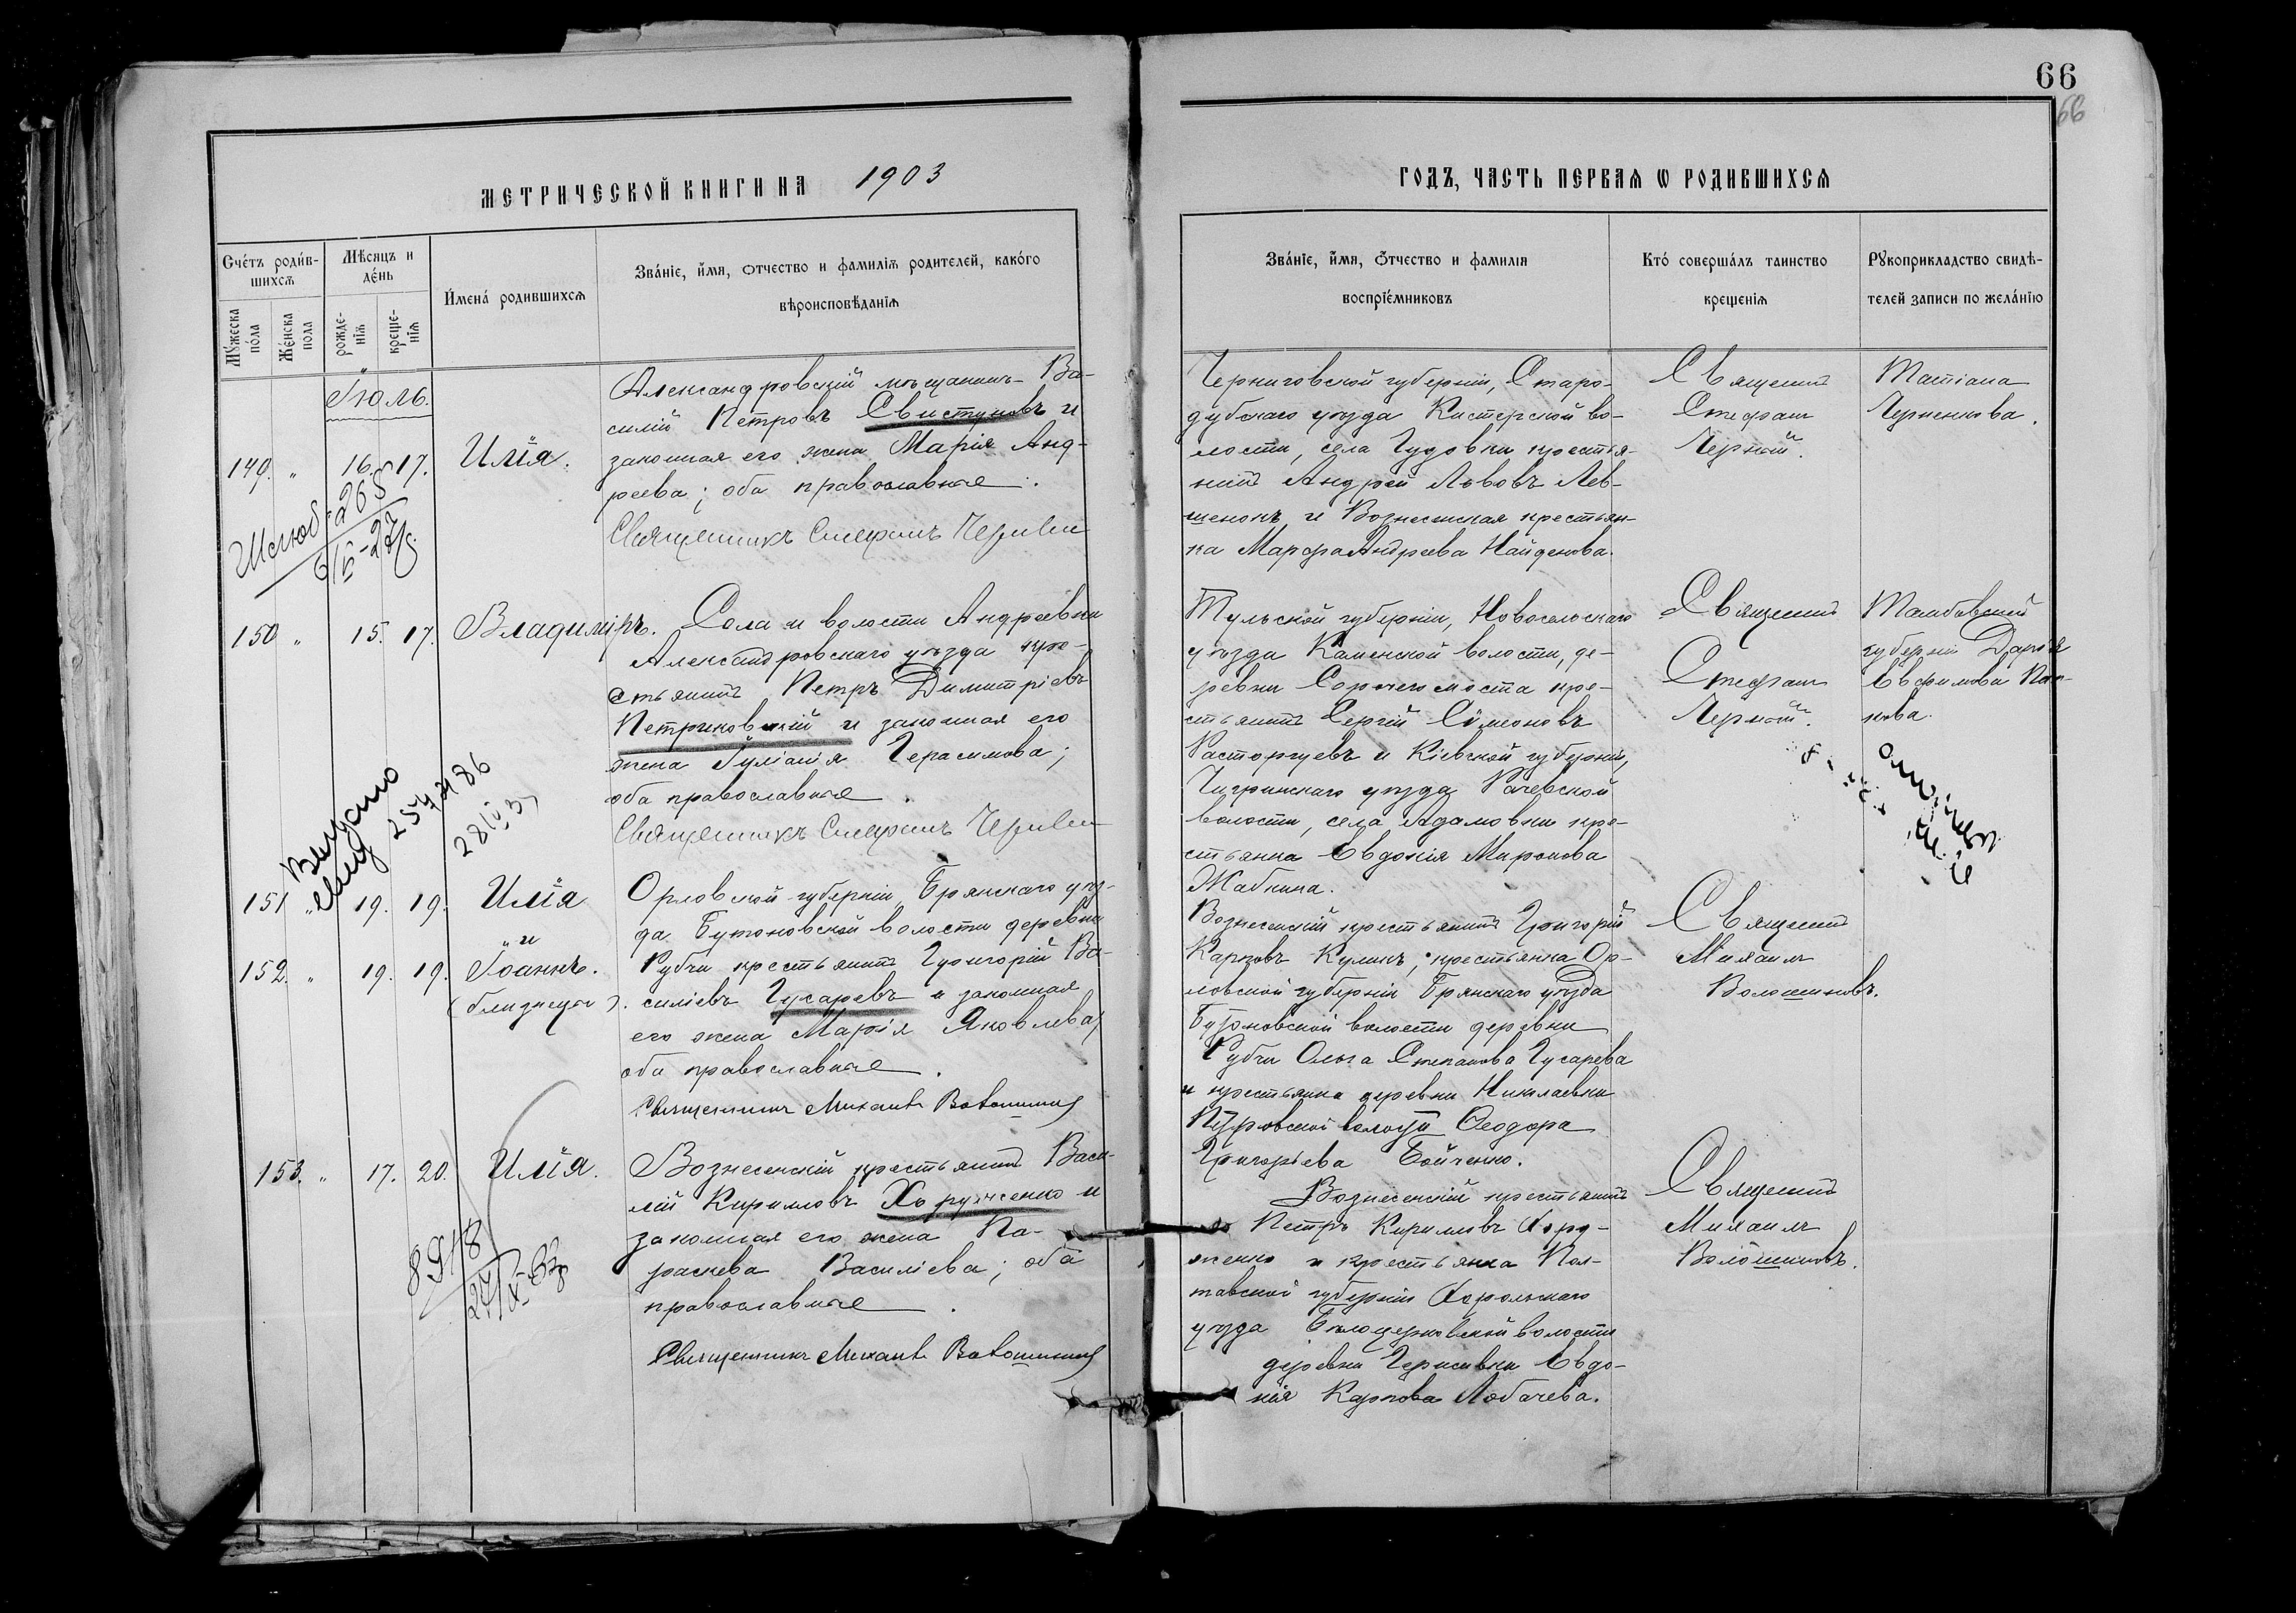 66
66
МЕТРИЧЕСКОЙ КНИГИ НА 1903
ГОДЪ, ЧАСТЬ ПЕРВАЯ Ѡ РОДИВШИХСЯ
Счетъ родив-
шихся
Мужеска пола
Женска пола
Мѣсяцъ и
день
рожде-
нія
креще-
нія
Имена родившихся
Званіе, имя, отчество и фамилія родителей, какого
вѣроисповѣданія
Званіе, имя, отчество и фамилія
воспріемниковъ
Кто совершалъ таинство
крещенія
Рукоприкладство свидѣ-
телей записи по желанію
Іюль.
149. " 16. 17. Илія.
Александровскій мѣщанинъ Ва-
силій Петровъ Свистуновъ и
законная его жена Марія Анд-
реева; оба православные.
Священникъ Стефанъ
Черниговской губерніи, Старо-
дубскаго уѣзда Кистерской во-
лости, села Гудовки крестья-
нинъ Андрей Львовъ Лев-
шенокъ и Вознесенская крестьян-
ка Марфа Андреева Найденова.
Священ
Стефан
Черный.
Татіана
Черненкова.
150 " 15. 17. Владиміръ.
Села и волости Андреевки
Александровскаго уѣзда кре-
стьянинъ Петръ Димитріевъ
Петриковскій и законная его
жена Іуліанія Герасимова;
оба православные.
Священникъ Стефанъ
Тульской губерніи, Новосельскаго
уѣзда Каменской волости, де-
ревни кре-
стьянинъ Сергій Сѵмеоновъ
Расторгуевъ и Кіевской губерніи,
Чигринскаго уѣзда Рачевской
волости, села Адамовки кре-
стьянка Евдокія Миронова
Жабкина.
Священ
Стефан
Черный.
Тамбовской
губерніи Дарія
Евфимова
Выдано
28/IV 37
151 " 19. 19. Илія
" и
152. " 19. 19. Іоаннъ.
(близнецы).
Орловской губерніи Брянскаго уѣз-
да Бутоновской волости деревни
Рубчи крестьянинъ Григорій Ва-
силіевъ Гусаревъ и законная
его жена Марія Яковлева;
оба православные.
Священникъ Михаилъ Волошиновъ
Вознесенскій крестьянинъ Григорій
Карповъ Куликъ; крестьянка Ор-
ловской губерніи Брянскаго уѣзда
Бутоновской волости деревни
Рубчи Ольга Степанова Гусарева
и крестьянка деревни Николаевки
Петровской волости Ѳеодора
Григорьева Бойченко.
Священ
Михаилъ
Волошиновъ.
153. " 17. 20. Илія.
Вознесенскій крестьянинъ Васи-
лій Кириловъ Хоружсенко и
законная его жена Па-
раскева Василіева; оба
православные.
Священникъ Михаилъ Волошиновъ
Вознесенскій крестьянинъ
Петръ Кириловъ Хору-
женко и крестьянка Пол-
тавской губерніи Хорольскаго
уѣзда Бѣлоцерковской волости
деревни Герасивки Евдо-
кія Карпова Лобачева.
Священ
Михаилъ
Волошиновъ.